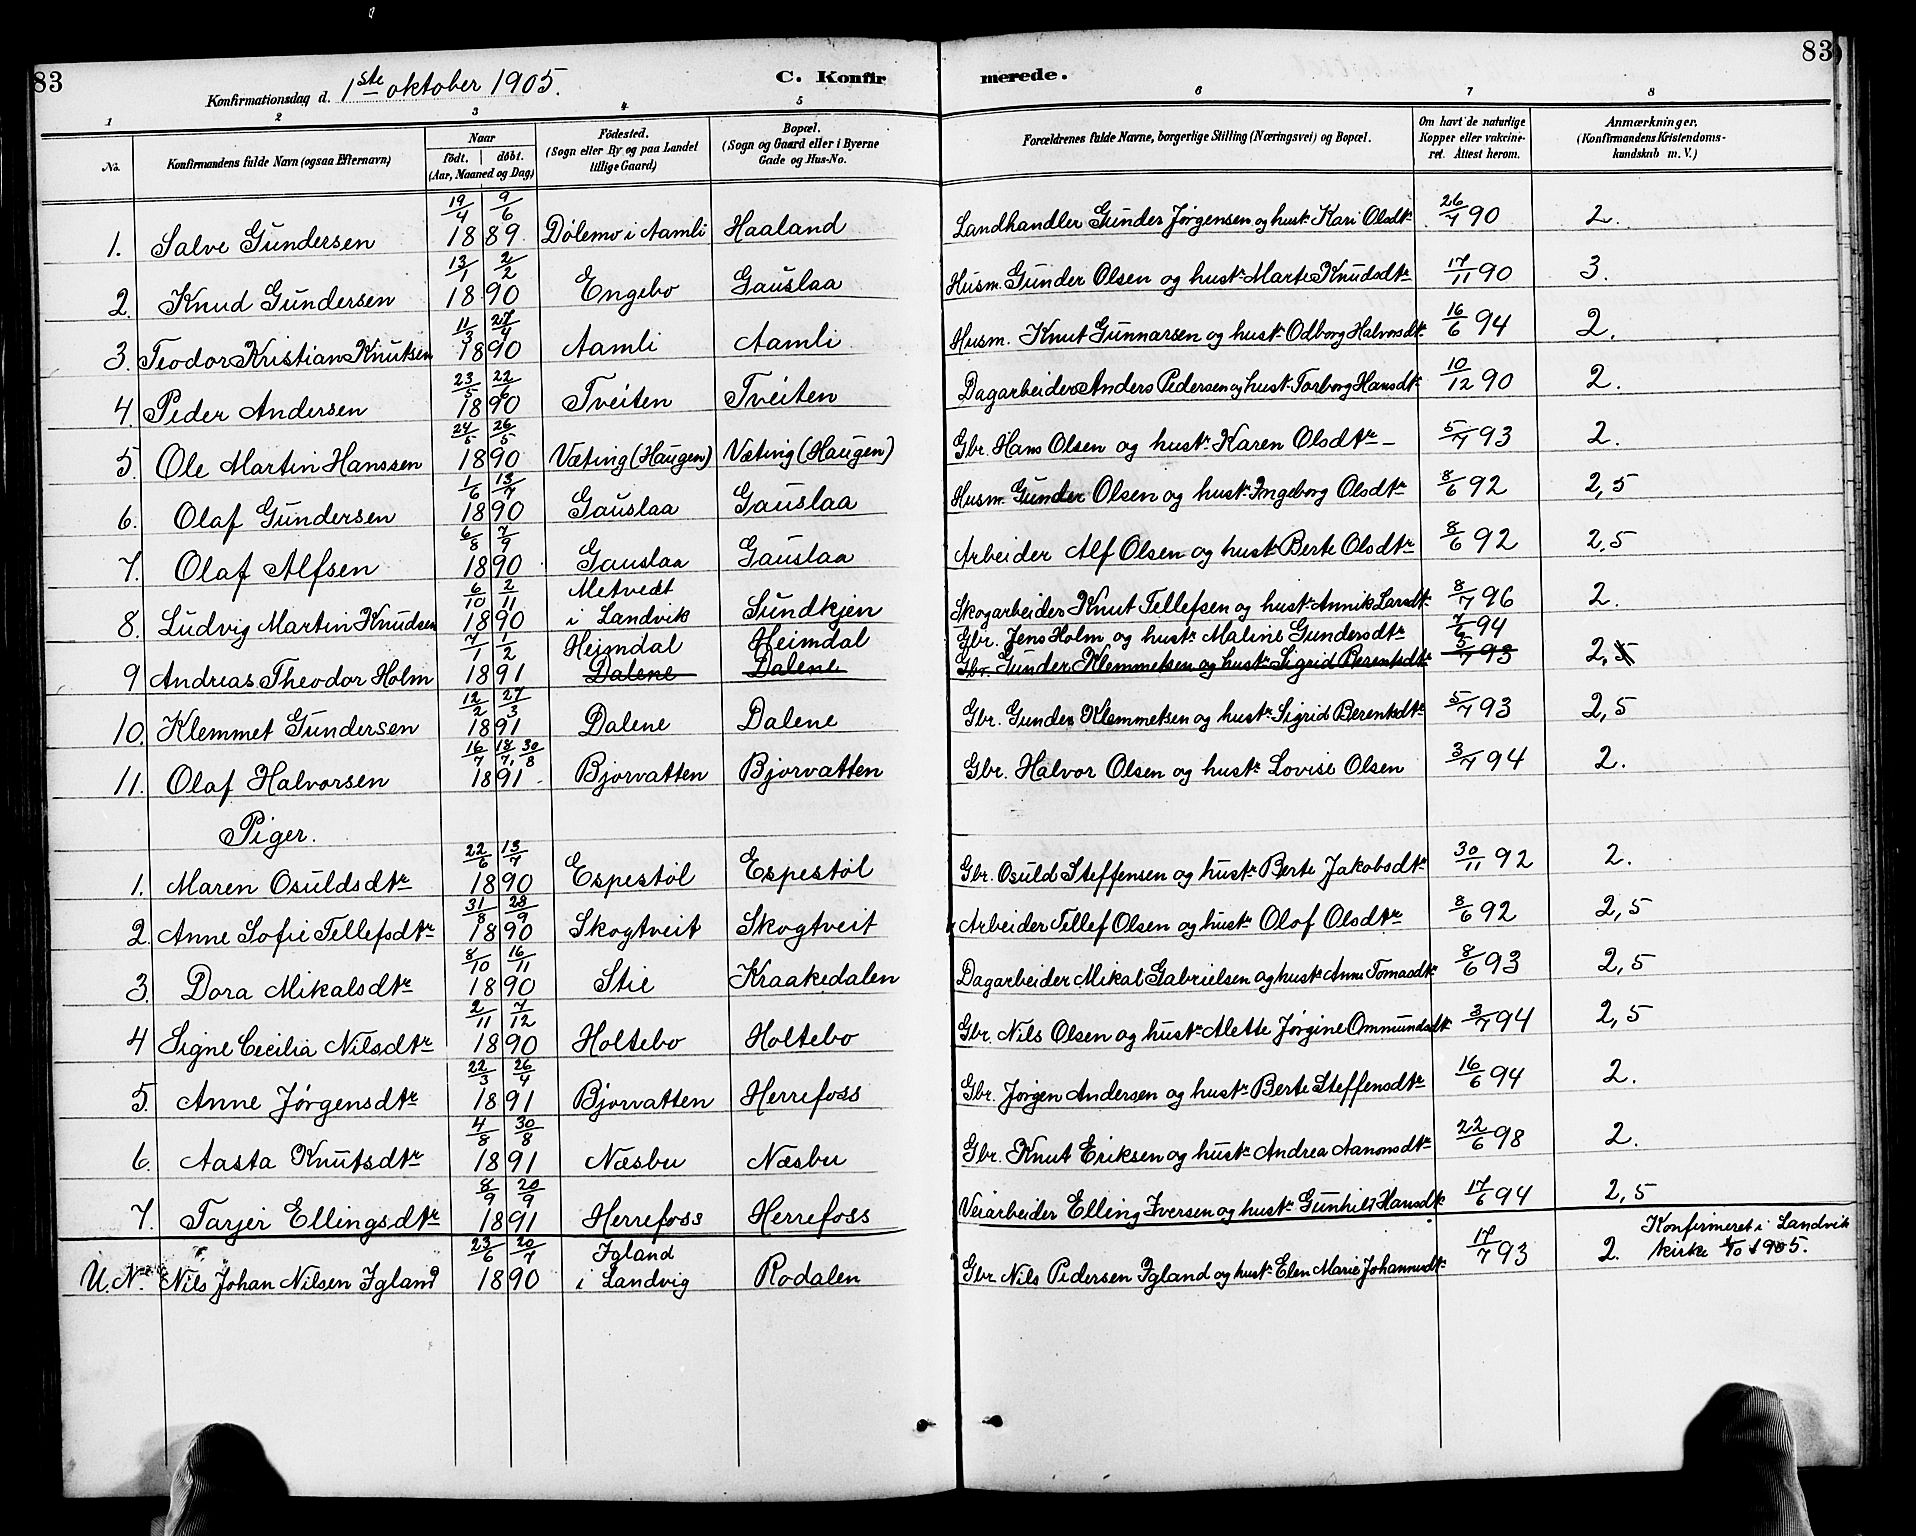 83
Konfirmationsdag d. 1ste oktober 1905.
C. Konfirmerede.
83
1 2 3 4 5 6 7 8
No.
Konfirmandens fulde Navn (ogsaa Efternavn)
Naar
født. døbt.
(Aar, Maaned og Dag)
Fødested.
(Sogn eller By og paa Landet
tillige Gaard)
Bopæl.
(Sogn og Gaard eller i Byerne
Gade og Hus-No.
Forældrenes fulde Navne, borgerlige Stilling (Næringsvei) og Bopæl.
Om havt de naturlige
Kopper eller vakcine-
ret. Attest herom.
Anmærkninger.
(Konfirmandens Kristendoms-
kundskab m. V.)
1. Salve Gundersen 19/4 9/6 1889. Dølemo i Aamli Haaland Landhandler Gunder Jørgensen og hustr Kari Olsdtr 26/7 90 2.
2. Knud Gundersen 13/1 2/2 1890 Engebo Gauslaa Husm. Gunder Olsen og hustr Marte Knudsdtr 17/11 90 3.
3. Teodor Kristian Knutsen 11/3 27/4 1890 Aamli Aamli Husm. Knut Gunnarsen og hustr Odborg Halvorsdtr 16/6 94 2.
4. Peder Andersen 23/5 22/6 1890 Tveiten Tveiten Dagarbeider Anders Pedersen og hustr Torborg Hansdtr 10/12 90 2.
5. Ole Martin Hanssen 24/5 26/5 1890 Væting (Haugen) Væting (Haugen) Gbr. Hans Olsen og hustr Karen Olsdtr – 5/7 93 2.
6. Olaf Gundersen 1/6 13/7 1890 Gauslaa Gauslaa Husm. Gunder Olsen og hustr Ingeborg Olsdtr 8/6 92 2,5
7. Olaf Alfsen 6/8 7/9 1890 Gauslaa Gauslaa Arbeider Alf Olsen og hustr Berte Olsdtr 8/6 92 2,5
8. Ludvig Martin Knudsen 6/10 2/11 1890 Metvedt i Landvik Sundkjen Skogarbeider Knut Tellefsen og hustr Annik Larsdtr 8/7 96 2.
Heimdal Heimdal Gbr. Jens Holm og hustr Maline Gundersdtr 7/6 94
9 Andreas Theodor Holm 7/1 1/2 1891 Dalene Dalene Gbr. Gunder Klemmetsen og hustr Sigrid Berentsdtr 5/7 93 2,5
10. Klemmet Gundersen 12/2 27/3 1891 Dalene Dalene Gbr. Gunder Klemmetsen og hustr Sigrid Berentsdtr 5/7 93 2,5
11. Olaf Halvorsen 16/7 18/7, 30/8 1891. Bjorvatten Bjorvatten Gbr. Halvor Olsen og hustr Lovise Olsen 3/7 94 2.
Piger.
1. Maren Osuldsdtr 22/6 13/7 1890 Espestøl Espestøl Gbr. Osuld Steffensen og hustr Berte Jakobsdtr 30/11 92 2.
2. Anne Sofie Tellefsdtr 31/8 28/9 1890 Skogtveit Skogtveit Arbeider Tellef Olsen og hustr Olof Olsdtr 8/6 92 2,5
3. Dora Mikalsdtr 8/10 16/11 1890 Stie Kraakedalen Dagarbeider Mikal Gabrielsen og hustr Anne Tomasdtr 8/6 93 2,5
4 Signe Cecilia Nilsdtr 2/11 7/12 1890 Holtebo Holtebo Gbr. Nils Olsen og hustr Alette Jørgine Ommundsdtr 3/7 94 2,5
5. Anne Jørgensdtr 22/3 26/4 1891 Bjorvatten Herrefoss Gbr. Jørgen Andersen og hustr Berte Steffensdtr 16/6 94 2.
6. Aasta Knutsdtr 4/8 30/8 1891 Næsbu Næsbu Gbr. Knut Eriksen og hustr Andrea Aanonsdtr 22/6 98 2.
7. Tarjer Ellingsdtr 8/9 20/9 1891 Herrefoss Herrefoss Veiarbeider Elling Iversen og hustr Gunhild Hansdtr 17/6 94 2,5
U. Nr. Nils Johan Nilsen Igland 23/6 20/7 1890 Igland i Landvig Rodalen Gbr Nils Pedersen Igland og hustr Elen Marie Johannesdtr 17/7 93 2. Konfirmeret i Landvik
kirke 1/10 1905.